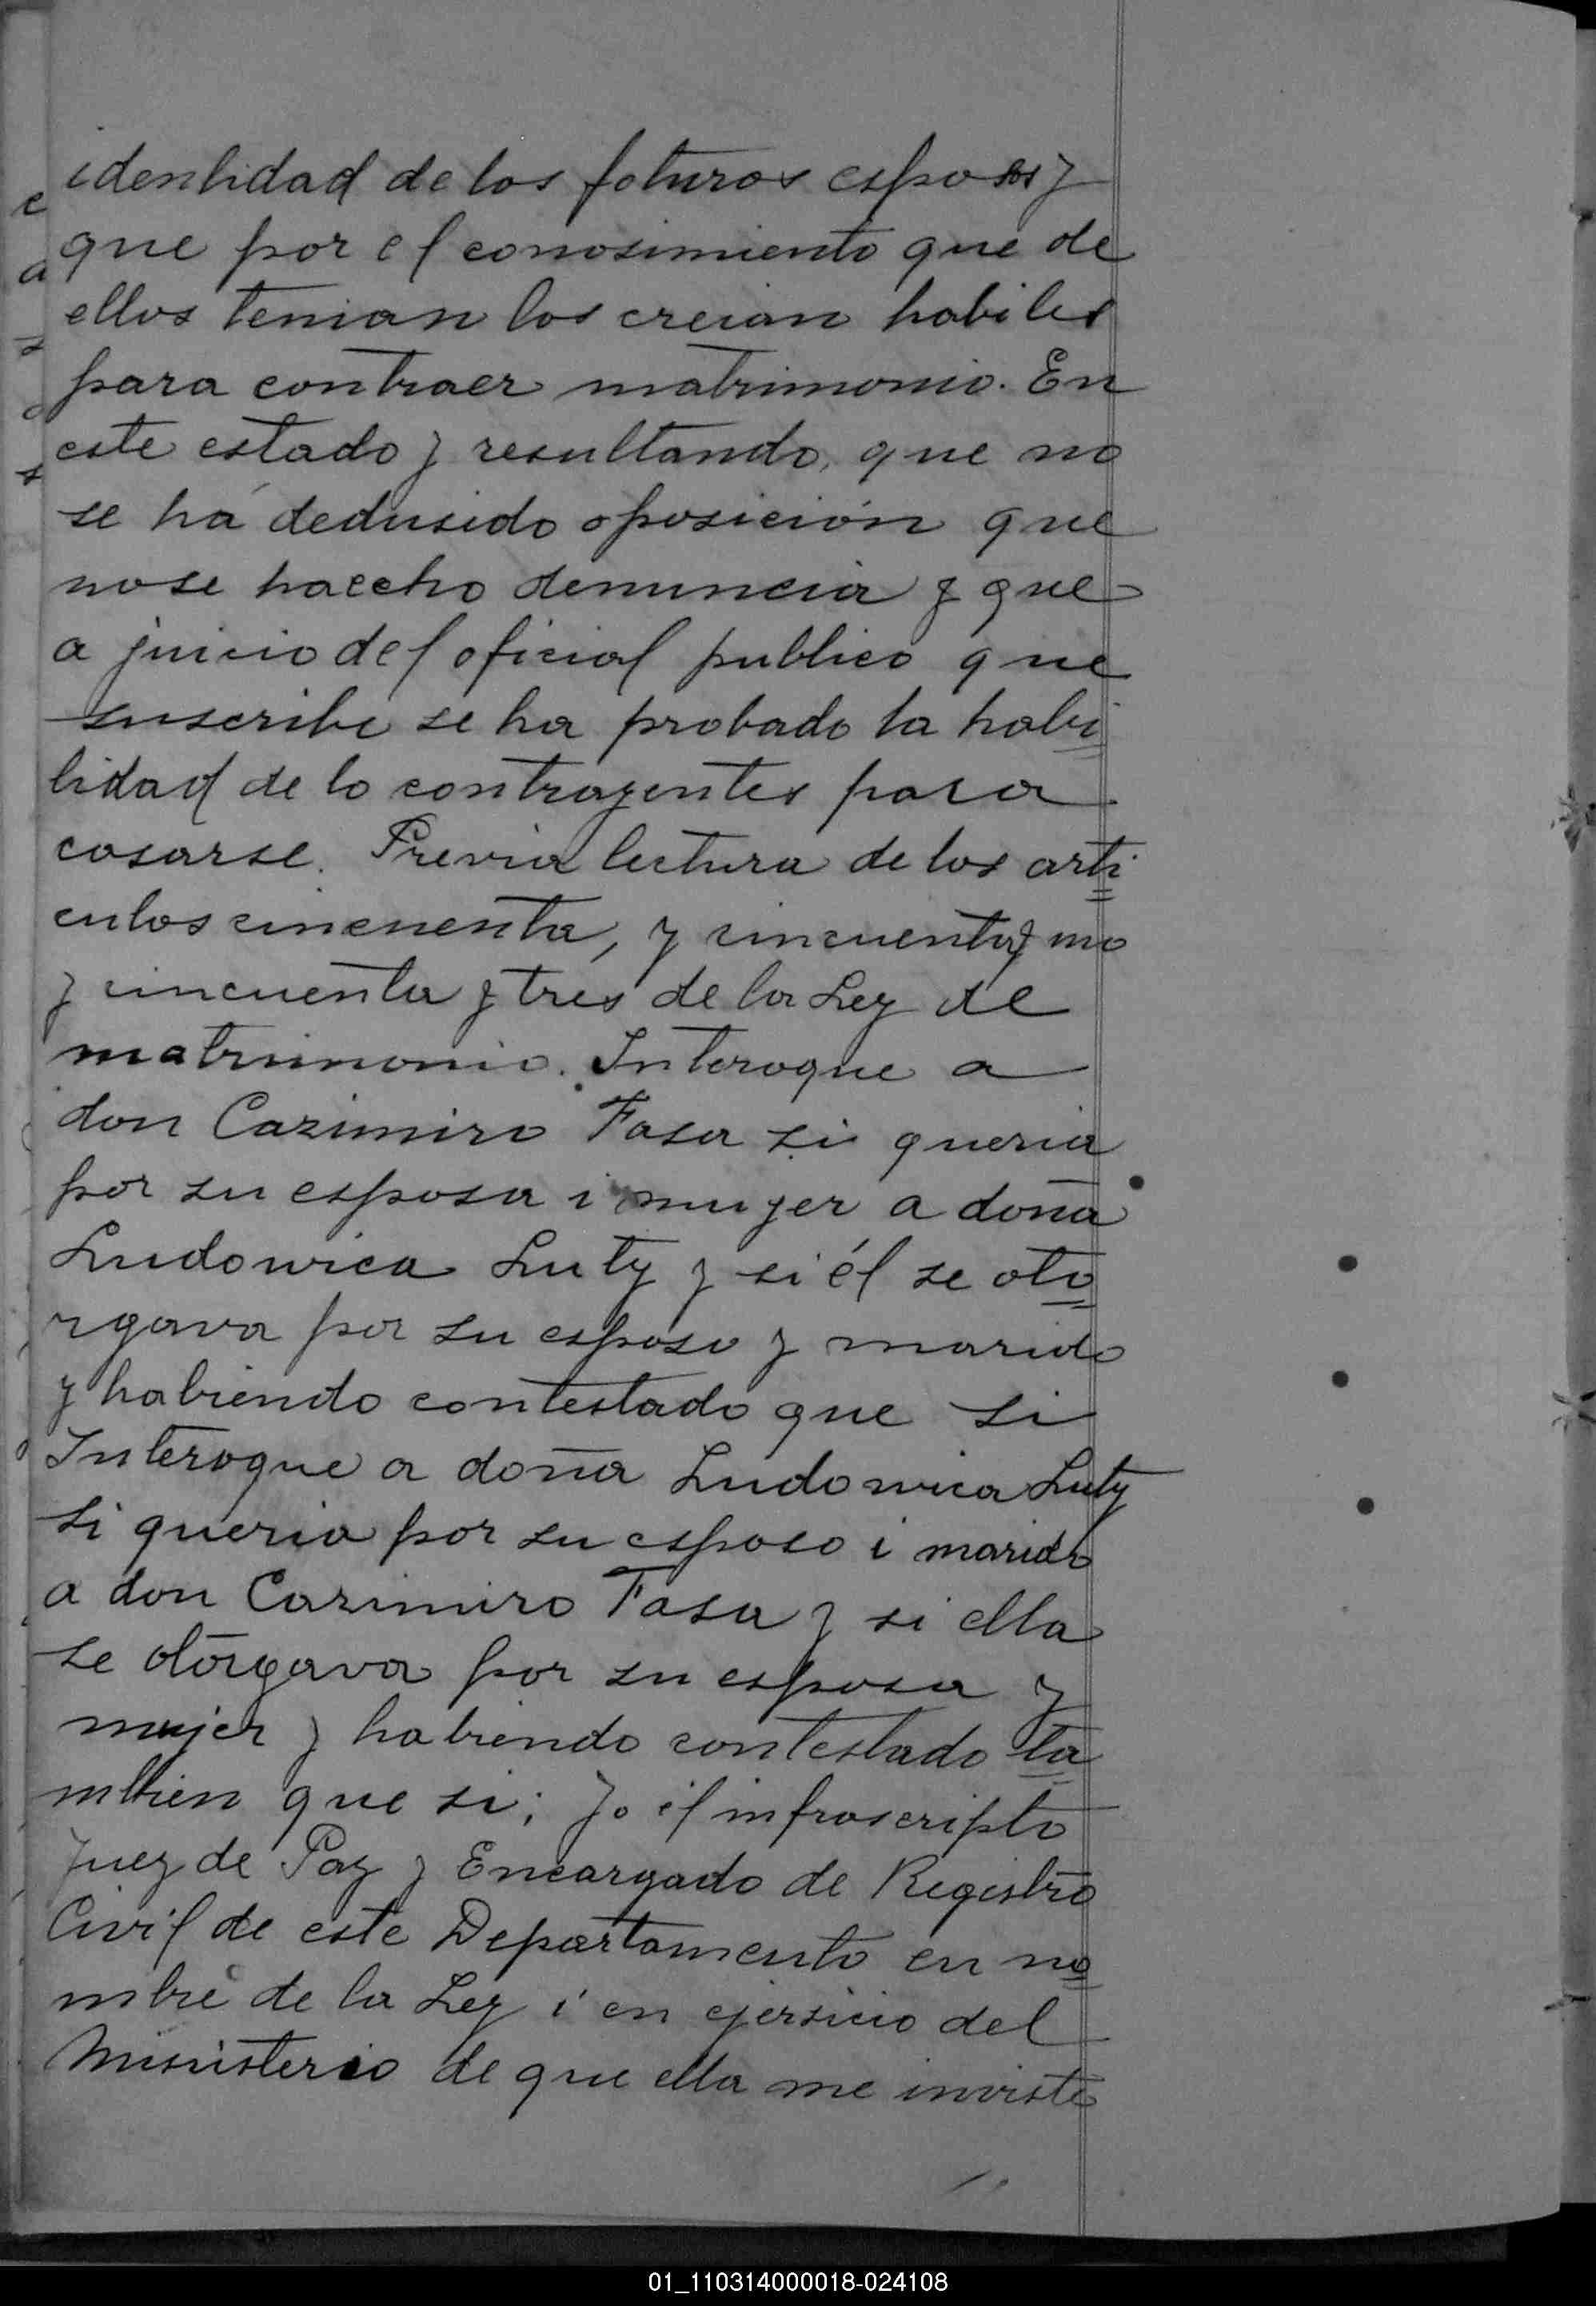 identidad de los foturos esposos y
que por el conosimiento que de
ellos tenian los creian habiles
para contraer matrimonio. En
este estado y resultando, que no
se ha dedusido oposición que
no se haecho denuncia y que
a juicio del oficial publico que
suscribe se ha probado la habi
lidad de lo contrayentes para
casarse. Previa lectura de los arti
culos cincuenta, y cincuenta y uno
y cincuenta y tres de la Ley de
matrimonio. Interogue a
don Cazimiro Fasa si queria
por su esposa i mujer a doña
Ludowica Luty y si él se oto
rgava por su esposo y marido
y habiendo contestado que si
Interogue a doña Ludowica Luty
si queria por su esposo i marido
a don Cazimiro Fasa y si ella
se otorgava por su esposa y
mujer y habiendo contestado ta
mbien que si; Jo el infrascripto
Juez de Paz y Encargado de Registro
Civil de este Departamento en no
mbre de la Ley i en ejersicio del
Ministerio de que ella me inviste
01_110314000018-024108